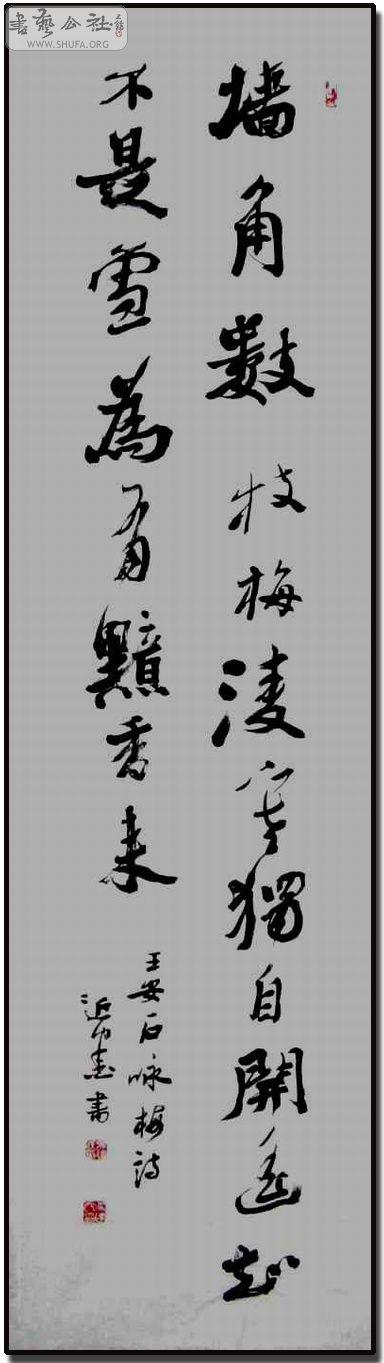 書藝公社
WWW.SHUFA.ORG
墙角數枝梅凌寒獨自開遥知
不是雪為有黯香来
王安石咏梅詩
書